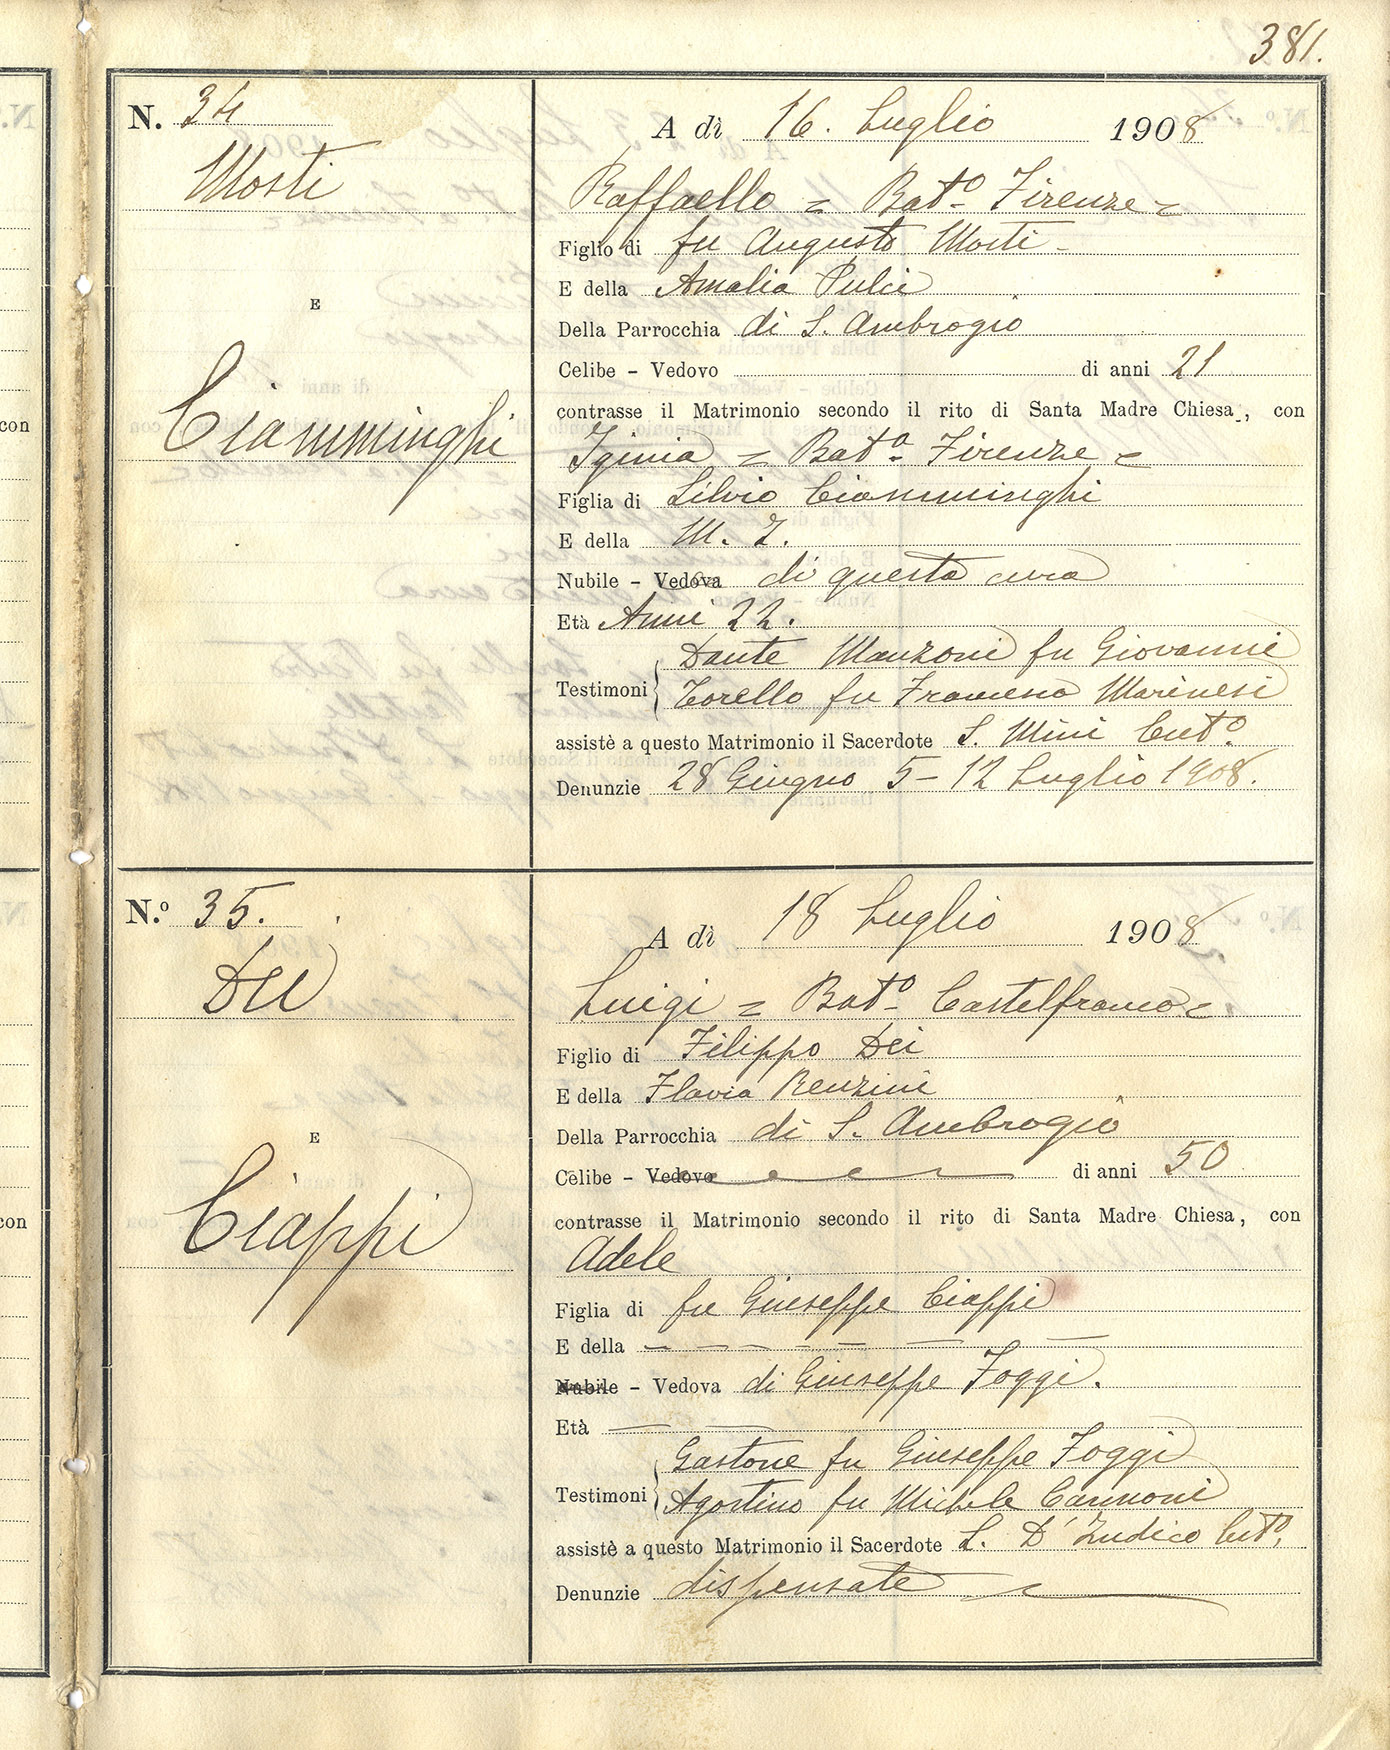 381.
N. 34
Mosti
E
Ciamminghi
A dì 16. Luglio 1908
Raffaello = Bat.º Firenze =
Figlio di fu Augusto Mosti
E della Amalia Pulci
Della Parrocchia di S. Ambrogio
Celibe – Vedovo di anni 21
contrasse il Matrimonio secondo il rito di Santa Madre Chiesa, con
Iginia = Bat.ª Firenze =
Figlia di Silvio Ciamminghi
E della M. I.
Nubile – Vedova di questa cura
Età Anni 22.
Testimoni Dante Manzoni fu Giovanni
Torello fu Francesco Marinesi
assistè a questo Matrimonio il Sacerdote S. Mini Cutº.
Denunzie 28 Giugno 5 – 12 Luglio 1908.
N.º 35.
Dei
E
Ciappi
A dì 18 Luglio 1908
Luigi = Batº Castelfranco =
Figlio di Filippo Dei
E della Flavia Renzini
Della Parrocchia di S. Ambrogio
Celibe – Vedovo di anni 50
contrasse il Matrimonio secondo il rito di Santa Madre Chiesa, con
Adele
Figlia di fu Giuseppe Ciappi
E della — — — — — — —
Nubile – Vedova di Giuseppe Foggi.
Età — —
Testimoni Gastone fu Giuseppe Foggi
Agostino fu Michele
assistè a questo Matrimonio il Sacerdote L. D'Indico Cutº.
Denunzie dispensate
con
con